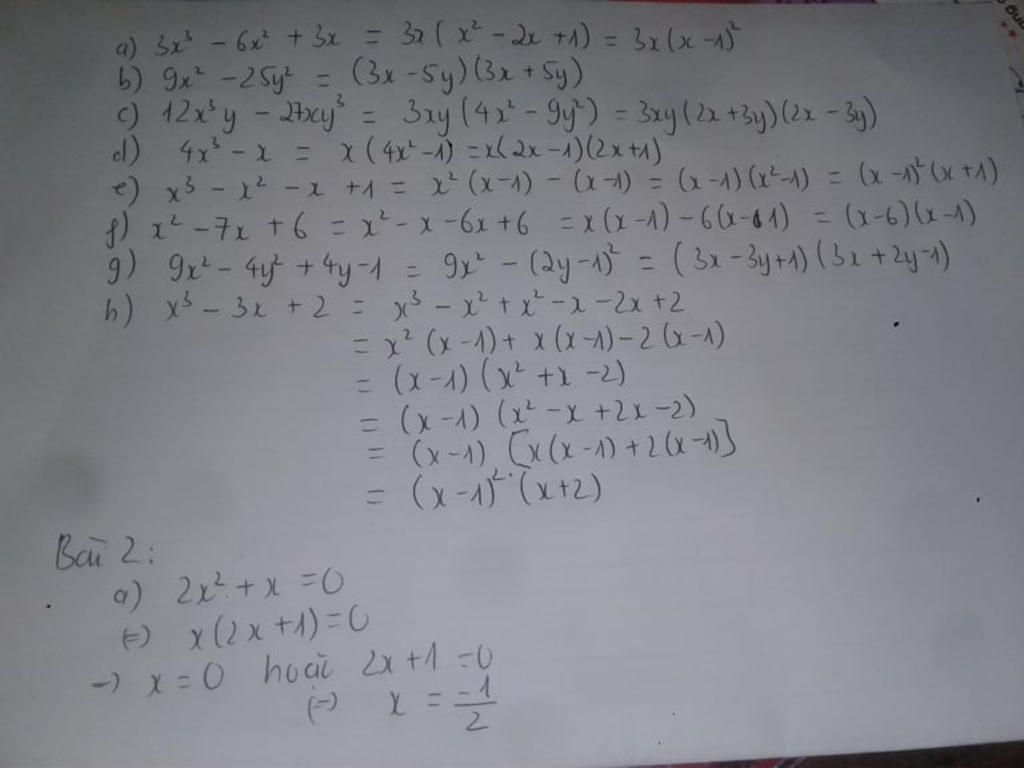 a) 3x³ - 6x² + 3x = 3x(x² - 2x + 1) = 3x(x - 1)²
b) 9x² - 25y² = (3x - 5y)(3x + 5y)
c) 12x³y - 27xy³ = 3xy(4x² - 9y²) = 3xy(2x + 3y)(2x - 3y)
d) 4x³ - x = x(4x² - 1) = x(2x - 1)(2x + 1)
e) x³ - x² - x + 1 = x²(x - 1) - (x - 1) = (x - 1)(x² - 1) = (x - 1)²(x + 1)
f) x² - 7x + 6 = x² - x - 6x + 6 = x(x - 1) - 6(x - 1) = (x - 6)(x - 1)
g) 9x² - 4y² + 4y - 1 = 9x² - (2y - 1)² = (3x - 3y + 1)(3x + 2y - 1)
h) x³ - 3x + 2 = x³ - x² + x² - x - 2x + 2
= x²(x - 1) + x(x - 1) - 2(x - 1)
= (x - 1)(x² + x - 2)
= (x - 1)(x² - x + 2x - 2)
= (x - 1)[x(x - 1) + 2(x - 1)]
= (x - 1)²·(x + 2)
Bài 2:
a) 2x² + x = 0
(=) x(2x + 1) = 0
-) x = 0 hoặc 2x + 1 = 0
(=) x = -1/2